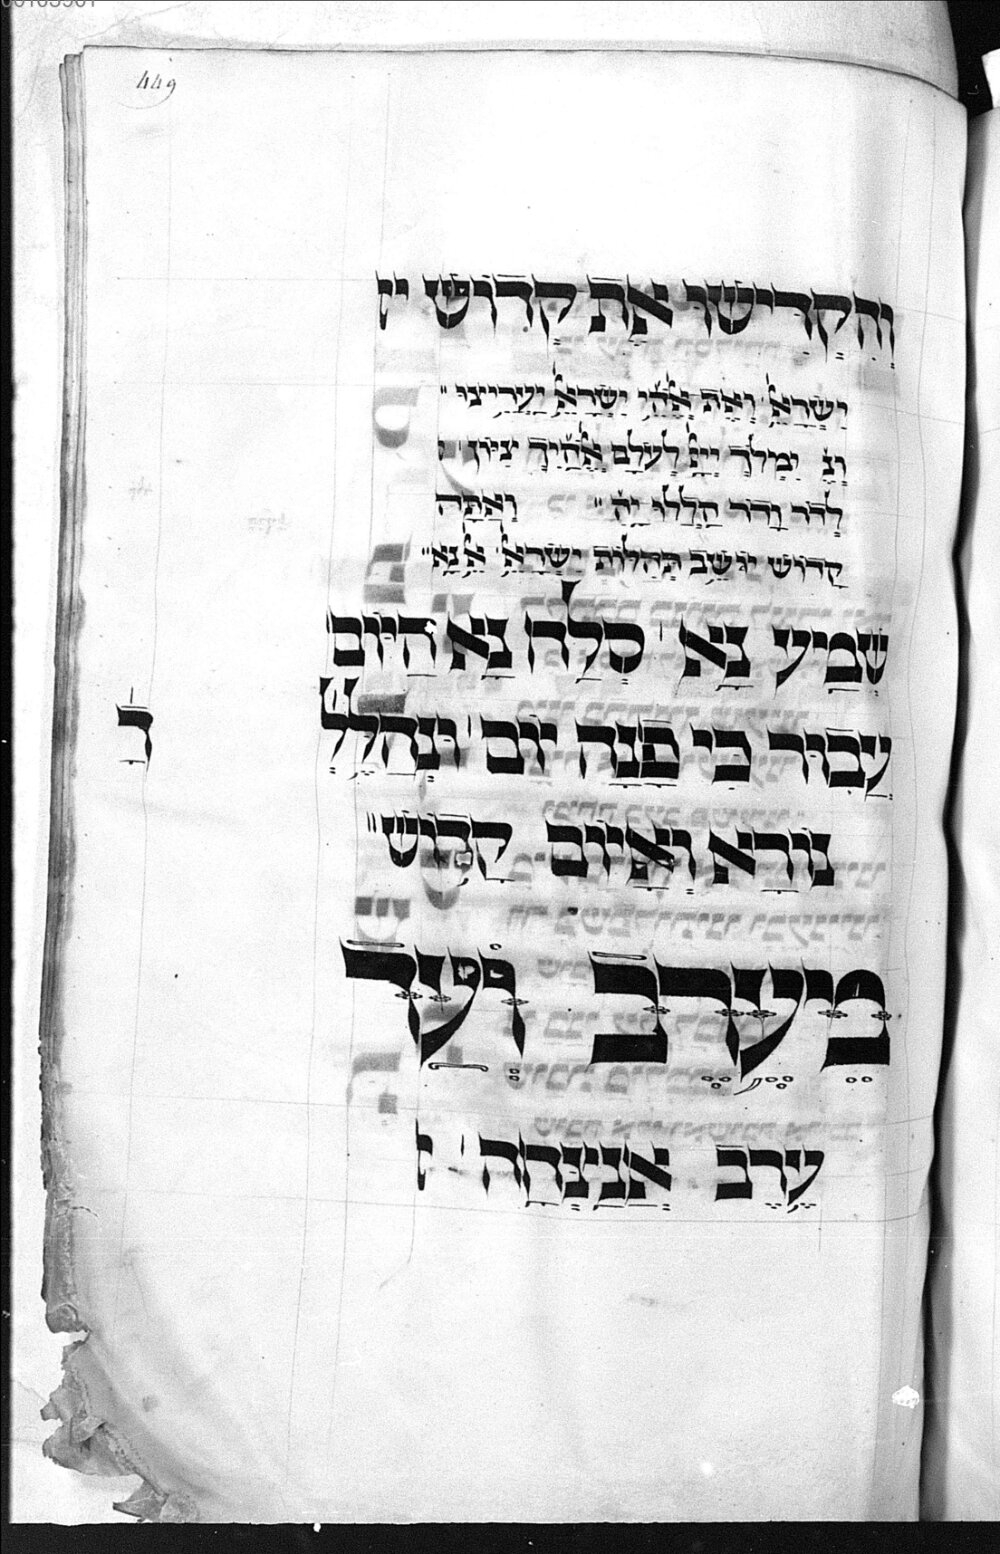 449
וְהִקְדִּישׁוּ אֶת קְדוֹשׁ יי
יִשְׂרָאֵל וְאֶת אֱלֹהֵי יִשְׂרָאֵל יַעֲרִיצוּ״
וְנֶ׳ יִמְלֹךְ יְיָ לְעֹלָם אֱלֹהַיִךְ צִיּוֹן
לְדֹר וָדֹר הַלְלוּ יָהּ״ וְאַתָּה
קָדוֹשׁ יוֹשֵׁב תְּהִלּוֹת יִשְׂרָאֵל אֵל נָא״
שְׁמַע נָא סְלַח נָא הַיּוֹם
עֲבוּר כִּי פָנָה יוֹם וּנְהַלֶּלְ
ךָ
נוֹרָא וְאָיוֹם קָדוֹשׁ״
מֵיעֶרֶב וְעַד
עֶרֶב